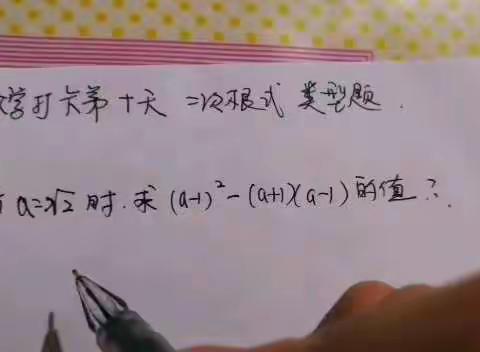 学打卡第十天 二次根式 类型题.
a=√2时.求(a-1)²-(a+1)(a-1)的值?.